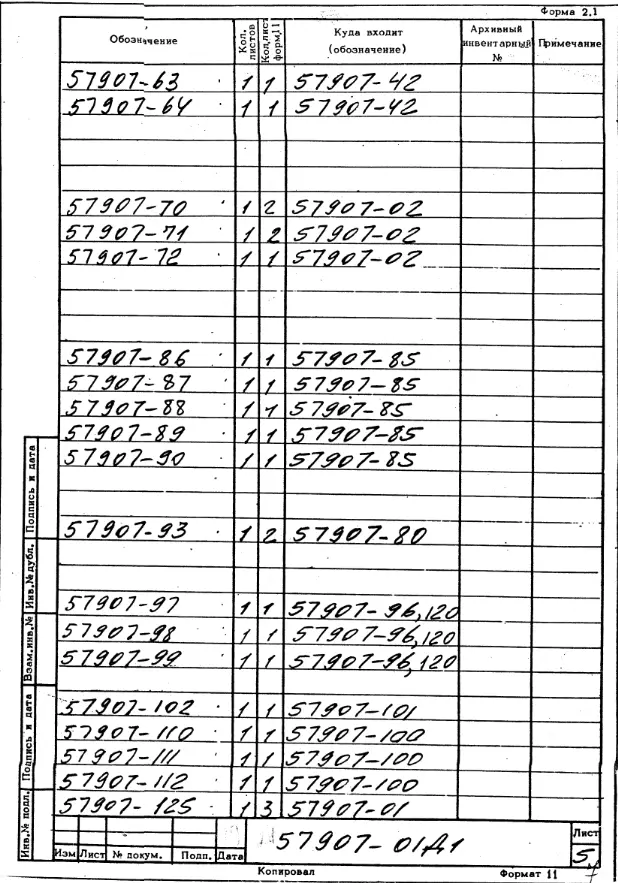 Форма 2.1
Обозначение Кол. листов Кол.лист форм.11 Куда входит (обозначение) Архивный инвентарный № Примечание
57907-63 1 1 57907-42
57907-64 1 1 57907-42
57907-70 1 2 57907-02
57907-71 1 2 57907-02
57907-72 1 1 57907-02
57907-86 1 1 57907-85
57907-87 1 1 57907-85
57907-88 1 1 57907-85
57907-89 1 1 57907-85
57907-90 1 1 57907-85
57907-93 1 2 57907-80
57907-97 1 1 57907-96,120
57907-98 1 1 57907-96,120
57907-99 1 1 57907-96,120
57907-102 1 1 57907-101
57907-110 1 1 57907-100
57907-111 1 1 57907-100
57907-112 1 1 57907-100
57907-125 1 3 57907-01
Подпись и дата
Инв.№ дубл.
Взам.инв.№
Подпись и дата
Инв.№ подл.
Изм Лист № докум. Подп. Дата
57907-01Д1
Лист
5
Копировал Формат 11